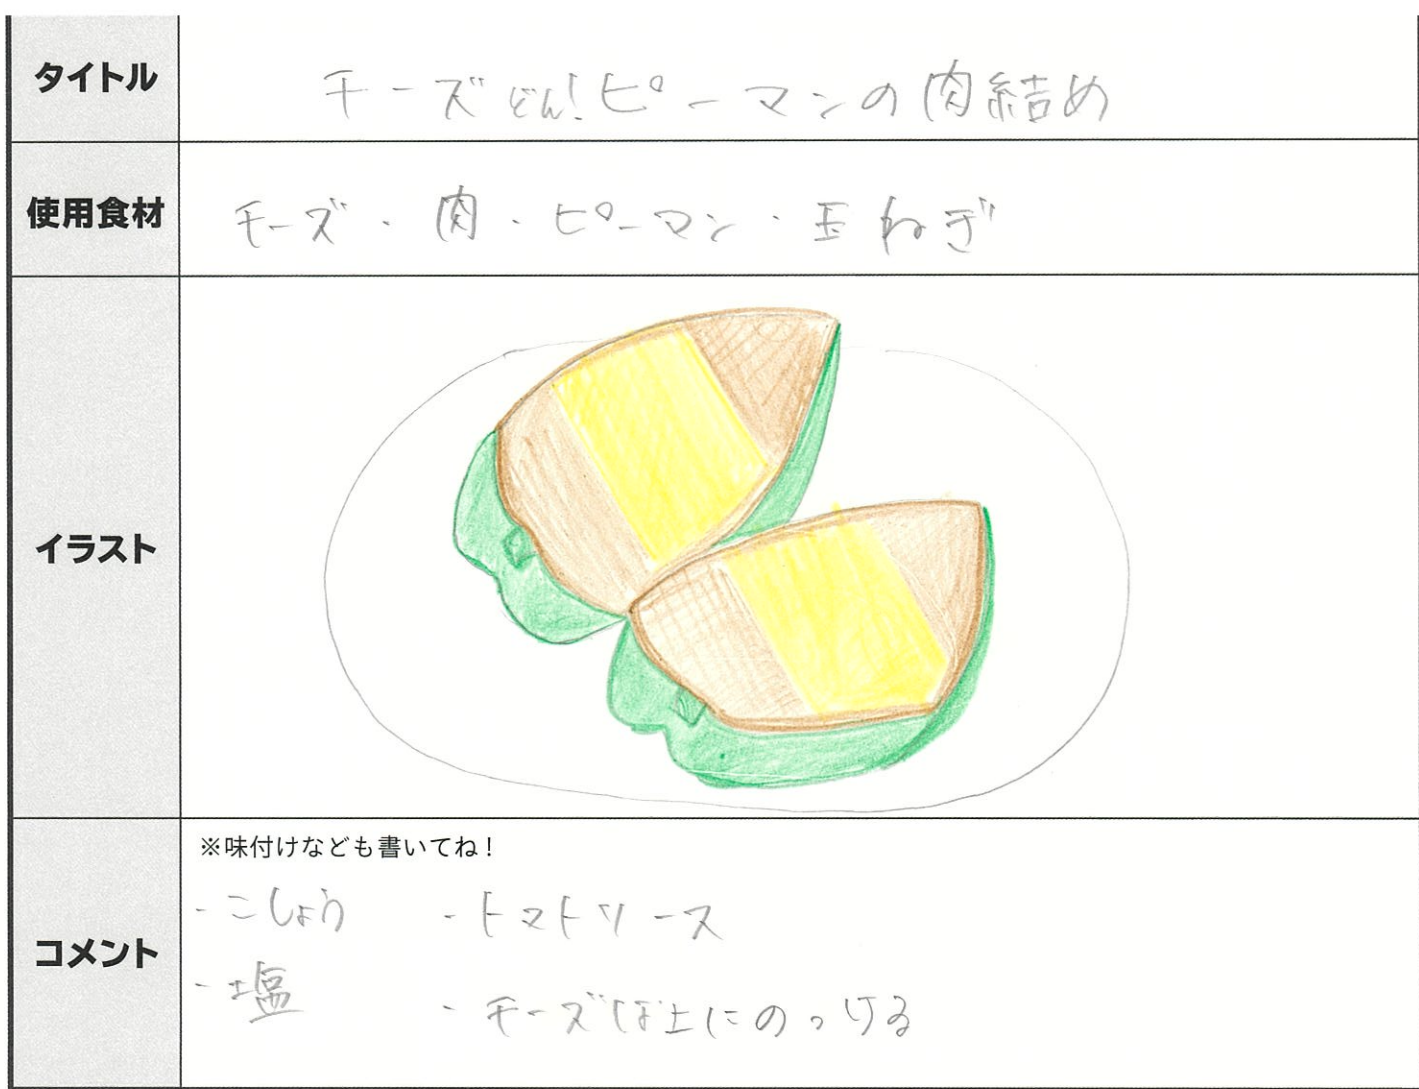 タイトル
チーズどん!ピーマンの肉結め
使用食材
チーズ・肉・ピーマン・玉ねぎ
イラスト
コメント
※味付けなども書いてね!
・こしょう ・トマトソース
・塩 ・チーズは上にのっける